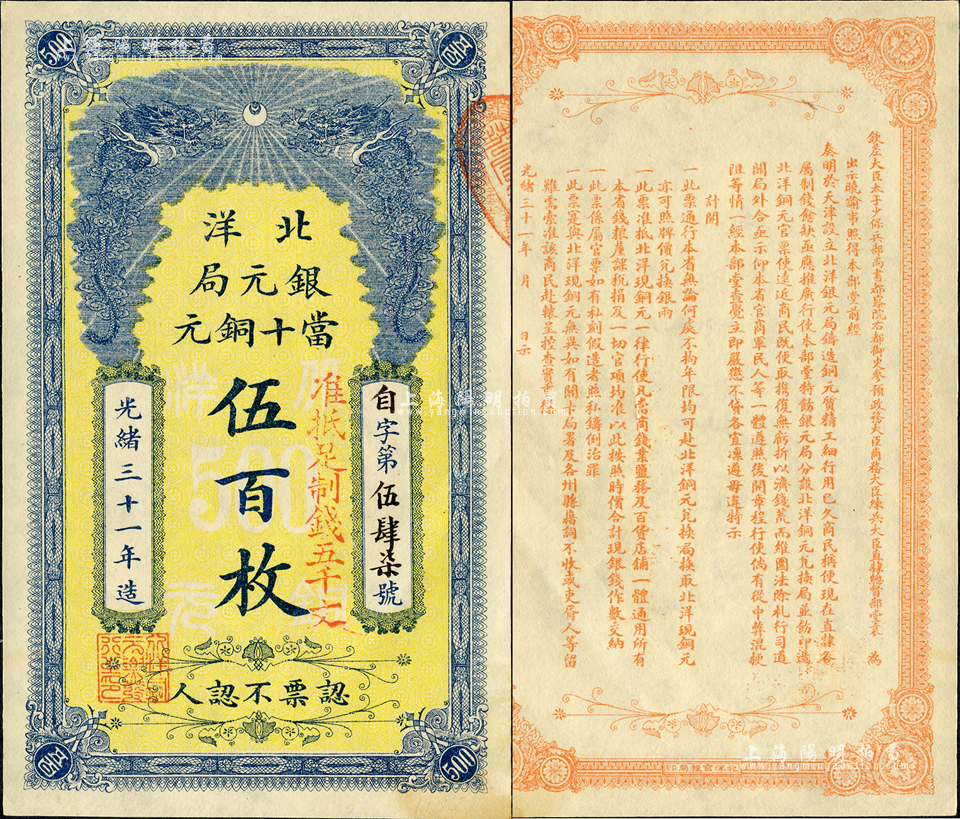 上海陽明拍賣
北洋
銀元局
當十銅元
伍百枚
准抵足制錢五千文
自字第伍肆柒號
光緒三十一年造
認票不認人
500
500
500
上海陽明拍賣
www.yangmingauction.com
欽差大臣太子少保兵部尚書都察院右都御史參預政務大臣商務大臣練兵大臣直隸總督部堂袁 為
出示曉諭事照得本部堂前經
奏明於天津設立北洋銀元局鑄造銅元質精工細行用已久商民稱便現在直隸各
屬制錢愈缺亟應推廣行使本部堂特飭銀元局分設北洋銅元兌換局並飭印造
北洋銅元官票使遠近商民既便取攜復無虧折以濟錢荒而維圜法除札行司道
關局外合亟示仰本省官商軍民人等一體遵照後開章程行使倘有從中弊混挾
阻等情一經本部堂查覺立即嚴懲不貸各宜凜遵毋違特示
計開
一此票通行本省無論何處不拘年限均可赴北洋銅元兌換局換取北洋現銅元
亦可照牌價兌換銀兩
一此票准抵北洋現銅元一律行使凡當商錢業鹽務及百貨店鋪一體通用所有
本省錢糧釐課稅捐及一切官項均准以此按照時價合計現銀錢作數交納
一此票係屬官票如有私刻假造者照私鑄例治罪
一此票寔與北洋現銅元無異如有關卡局署及各州縣藉詞不收或吏胥人等留
難需索准該商民赴轅呈控查實
光緒三十一年 月 日示
上海陽明拍賣
www.yangmingauction.com